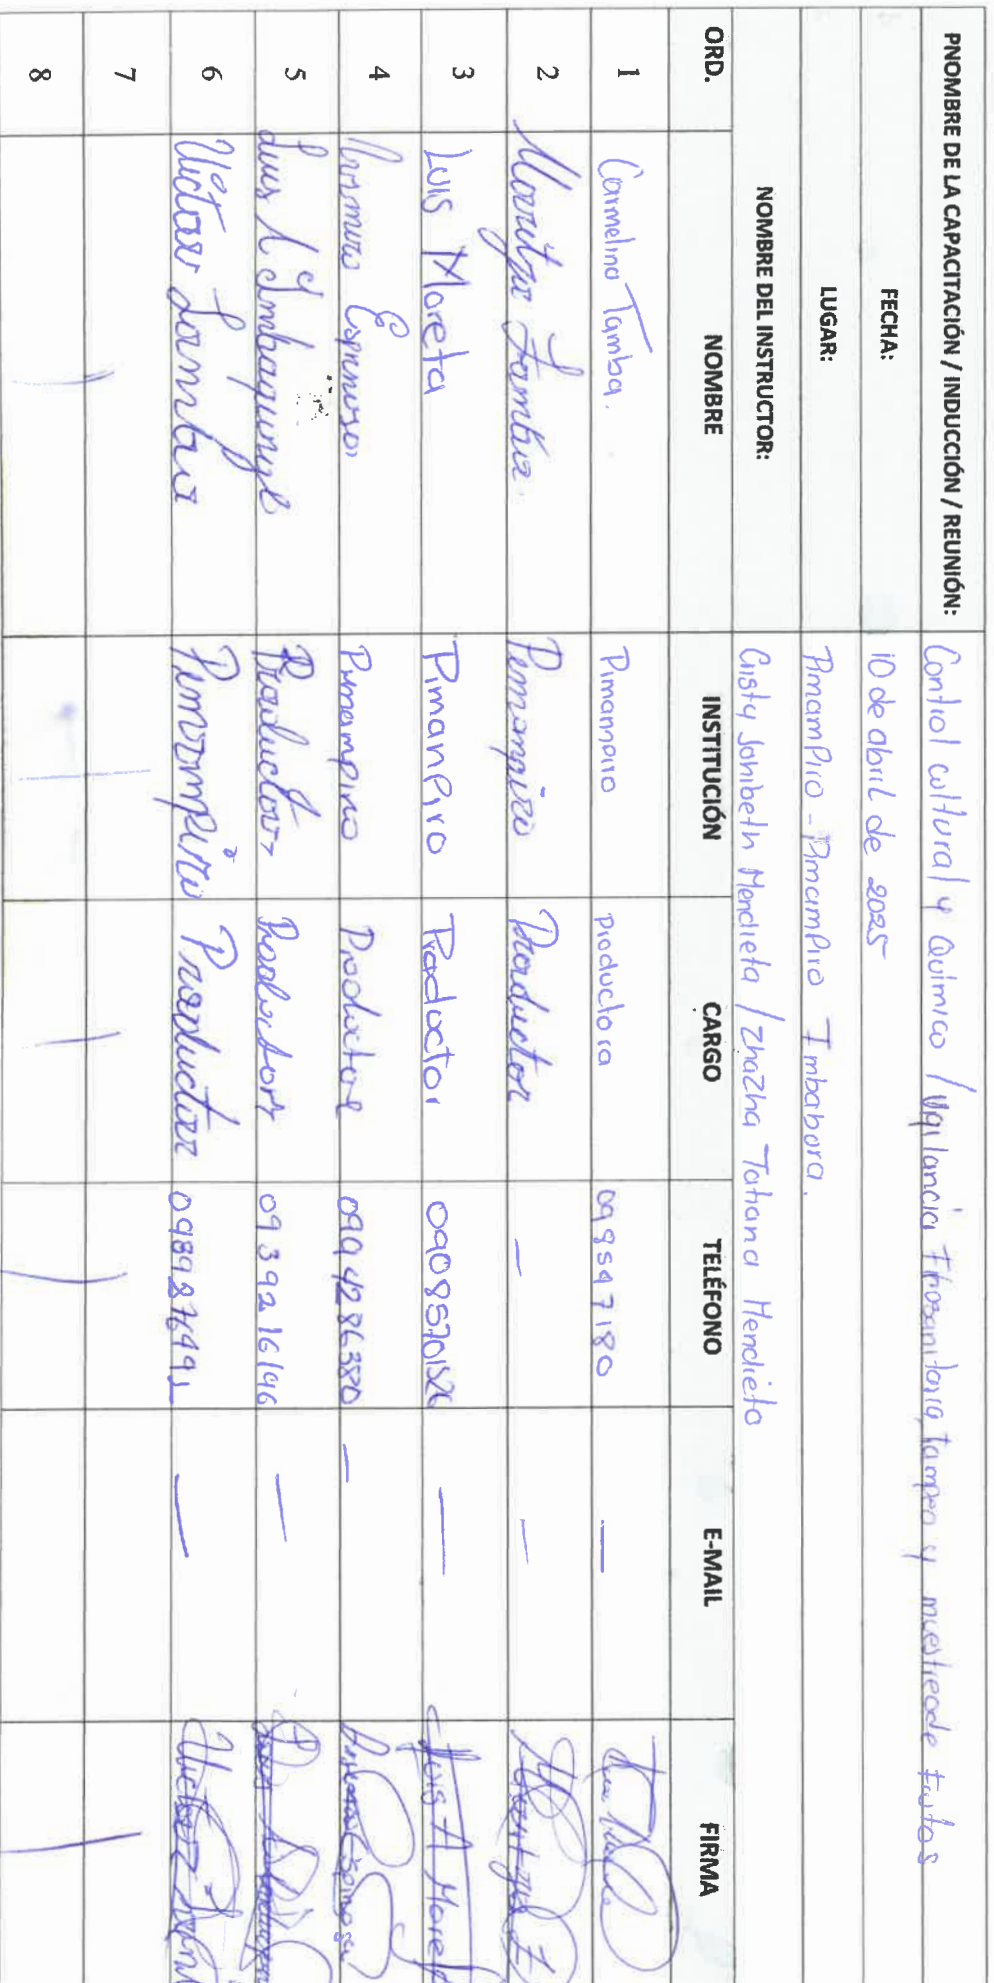 PNOMBRE DE LA CAPACITACIÓN / INDUCCIÓN / REUNIÓN: Control cultural y Químico / Vigilancia Fitosanitaria, tampeo y muestreode Frutos
FECHA: 10 de abril de 2025
LUGAR: PimamPiro - PimamPiro Imbabora.
NOMBRE DEL INSTRUCTOR: Cristy Johibeth Mendieta / Zhazha Tatiana Mendieta
ORD. NOMBRE INSTITUCIÓN CARGO TELÉFONO E-MAIL FIRMA
1 Carmelina Tamba. Pimampiro Productora 098547180 —
2 Maritza Tamba. Pimampiro Productor — —
3 Luis Moreta PimanPiro Productor 09085701526 — Luis A Moret
4 Espinosa Pimampiro Productor 0994286380 — Espinosa
5 Luis A Imbaquingo Productor Productor 0939216196 —
6 Víctor Tamba Pimampiro Productor 0989876491 —
7
8